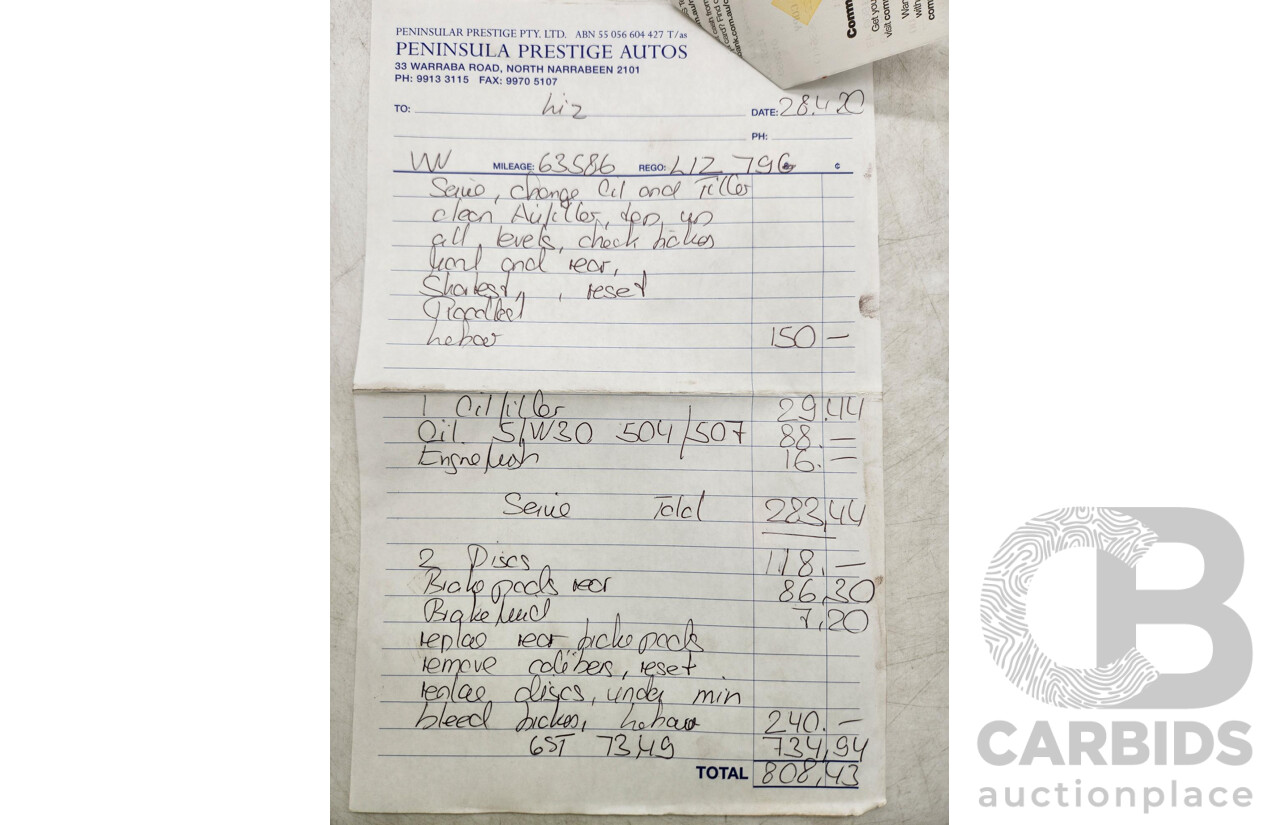 PENINSULAR PRESTIGE PTY. LTD. ABN 55 056 604 427 T/as
PENINSULA PRESTIGE AUTOS
33 WARRABA ROAD, NORTH NARRABEEN 2101
PH: 9913 3115 FAX: 9970 5107
TO: Liz DATE: 28.4.20
PH:
VW MILEAGE: 63586 REGO: LIZ 796 ¢
Servie, change Oil and Filter
clean Airfilter, top up
all levels, check brakes
front and rear,
reset
Labour 150 —
1 Oilfilter 29.44
Oil 5/W30 504/507 88. —
Engineflush 16. —
Servie Total 283,44
2 Discs 118. —
Brake pads rear 86,30
Brake fluid 7,20
replae rear brake pads
remove calibers, reset
replae discs, under min
bleed brakes, Labour 240. —
GST 73,49 734,94
TOTAL 808,43
Comm
Get you
visit com
with
com
CB
CARBIDS
auctionplace